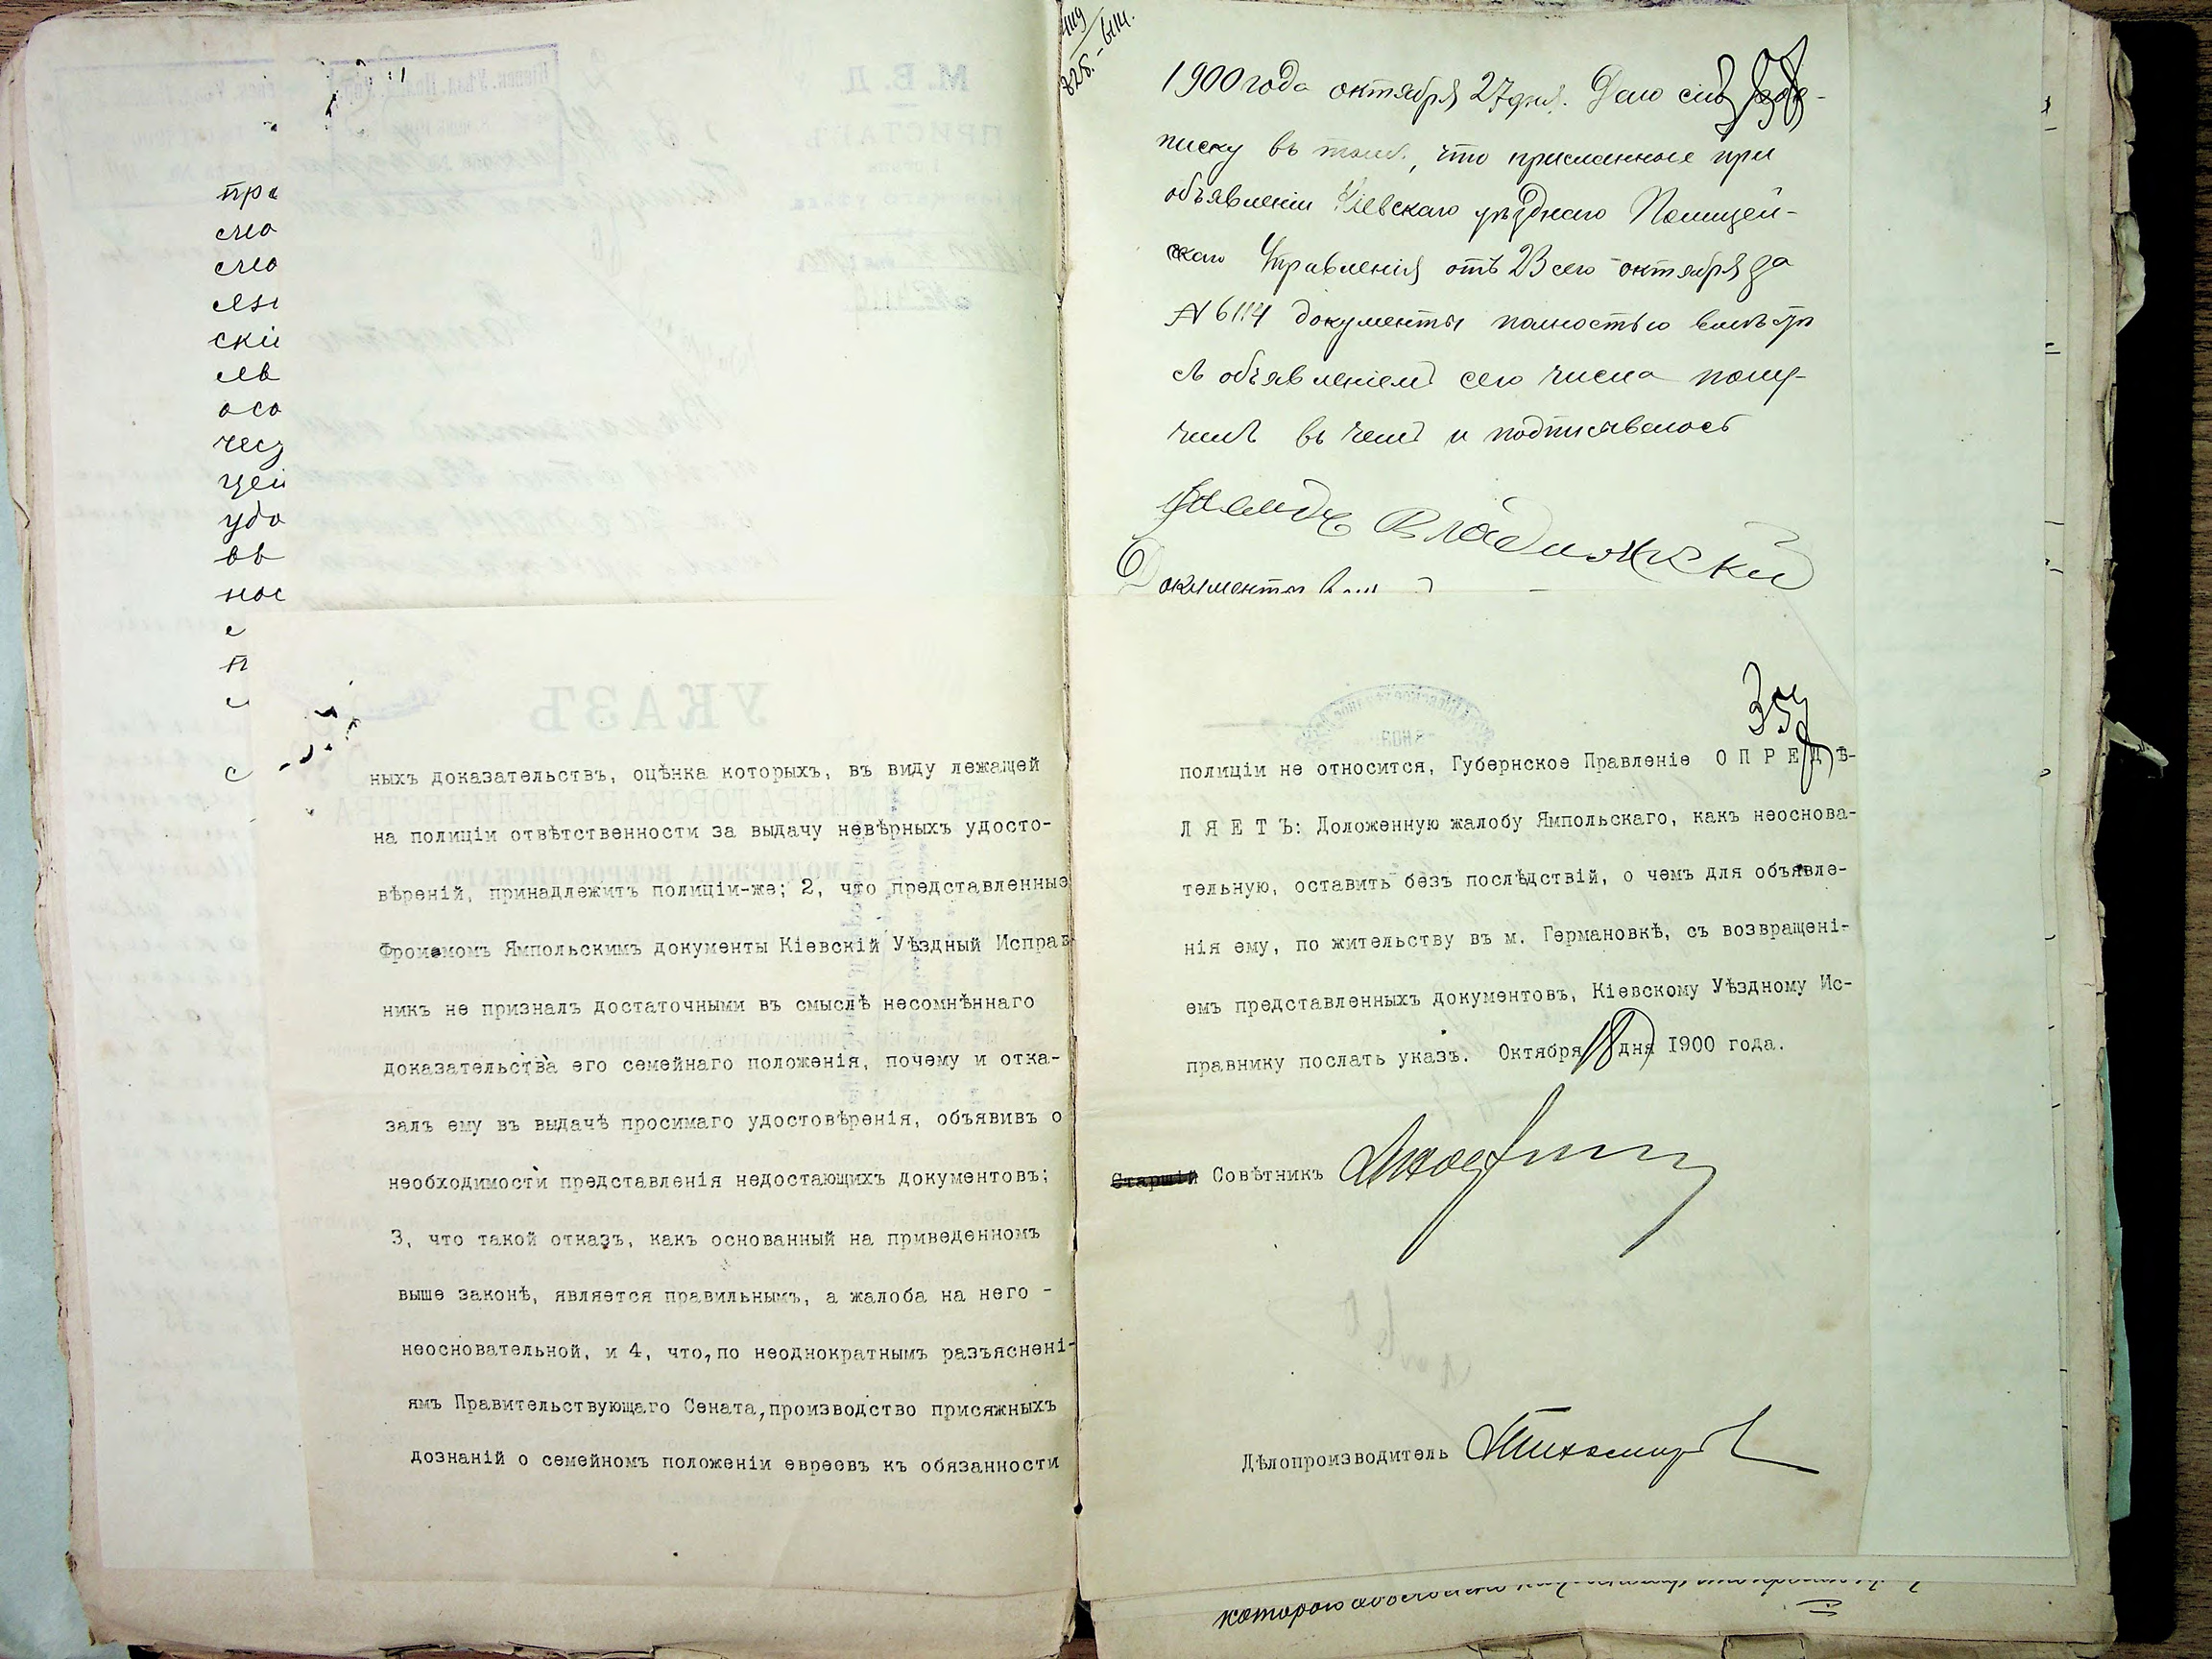 пра
сло
сло
скіи
лв
осо
чес
цеи
удо
вв
нос
е
п
с
ныхъ доказательствъ, оцѣнка которыхъ, въ виду лежащей
на полиціи отвѣтственности за выдачу невѣрныхъ удосто-
вѣреній, принадлежитъ полиціи-же; 2, что представленные
Фроимомъ Ямпольскимъ документы Кіевскій Уѣздный Исправ
никъ не призналъ достаточными въ смыслѣ несомнѣннаго
доказательства его семейнаго положенія, почему и отка-
залъ ему въ выдачѣ просимаго удостовѣренія, объявивъ о
необходимости представленія недостающихъ документовъ;
3, что такой отказъ, какъ основанный на приведенномъ
выше законѣ, является правильнымъ, а жалоба на него -
неосновательной, и 4, что, по неоднократнымъ разъясненi-
ямъ Правительствующаго Сената, производство присяжныхъ
дознаній о семейномъ положеніи евреевъ къ обязанности
1900 года октября 27 дня. Даю сію
писку въ томъ, что присланные при
объявленіи Кіевскаго уѣзднаго Полицей-
скаго Управленія отъ 23 сего октября за
№ 6114 документы полностью вмѣстѣ
съ объявленіемъ сего числа полу-
чилъ въ чемъ и подписываюсь
Документы
35
полиціи не относится, Губернское Правленіе О П Р Е Д Ѣ-
Л Я Е Т Ъ: Доложенную жалобу Ямпольскаго, какъ неоснова-
тельную, оставить безъ послѣдствій, о чемъ для объявле-
нія ему, по жительству въ м. Германовкѣ, съ возвращенi-
емъ представленныхъ документовъ, Кіевскому Уѣздному Ис-
правнику послать указъ. Октября 18 дня 1900 года.
Старшій Совѣтникъ
Дѣлопроизводитель Тихомировъ
которою